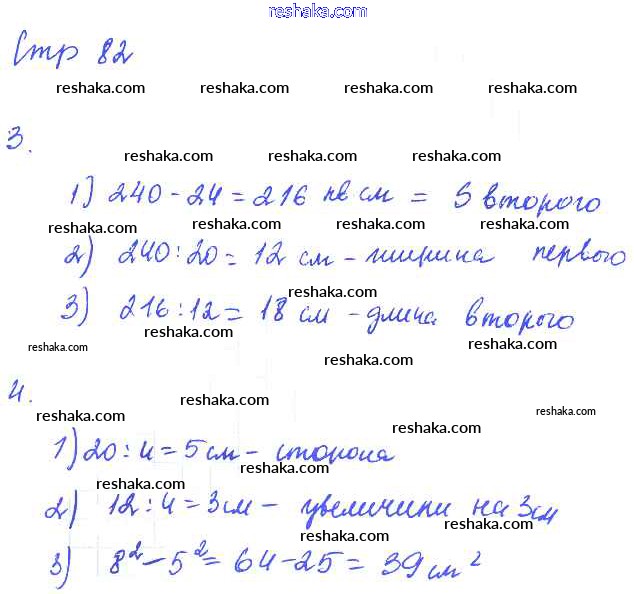 reshaka.com
Стр 82
reshaka.com reshaka.com reshaka.com reshaka.com
3.
reshaka.com reshaka.com reshaka.com
1) 240 - 24 = 216 кв см = S второго
reshaka.com reshaka.com reshaka.com reshaka.com
2) 240 : 20 = 12 см - ширина первого
reshaka.com
3) 216 : 12 = 18 см - длина второго
reshaka.com reshaka.com
reshaka.com reshaka.com
4.
reshaka.com reshaka.com reshaka.com
reshaka.com
1) 20 : 4 = 5 см - сторона
reshaka.com
reshaka.com reshaka.com
2) 12 : 4 = 3 см - увеличили на 3 см
reshaka.com
3) 8² - 5² = 64 - 25 = 39 см²
reshaka.com reshaka.com